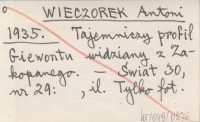 WIECZOREK Antoni
1935. Tajemniczy profil
Giewontu widziany z Za-
kopanego. — Świat 30,
nr 29: , il. Tylko fot.